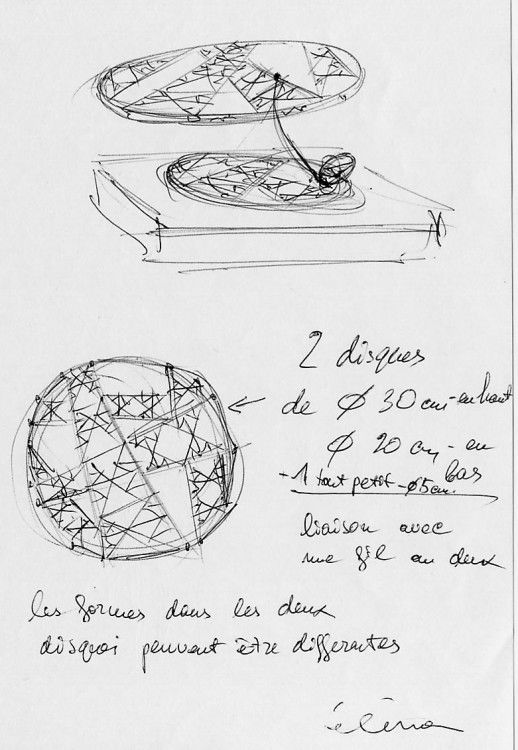 2 disques
de Ø 30 cm - en haut
Ø 20 cm - en
bas
+ 1 tout petit - Ø5 cm.
liaison avec
une fil ou deux
les formes dans les deux
disquoi peuvent être differentes
éléna